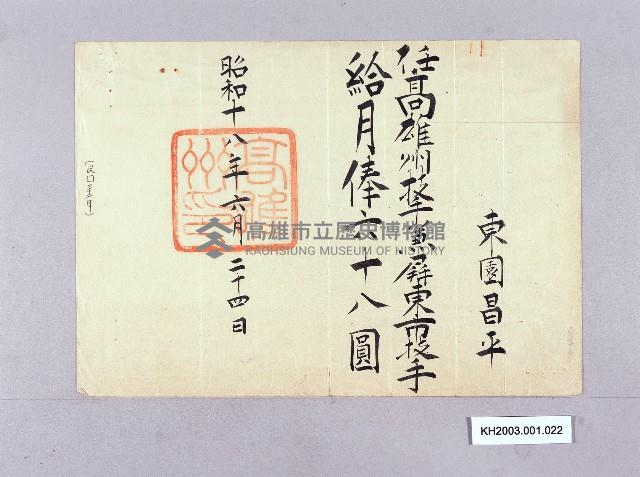 東園昌平
任高雄州技手兼屏東市技手
給月俸六十八圓
昭和十八年六月二十四日
高雄州印
高雄市立歷史博物館
KAOHSIUNG MUSEUM OF HISTORY
KH2003.001.022